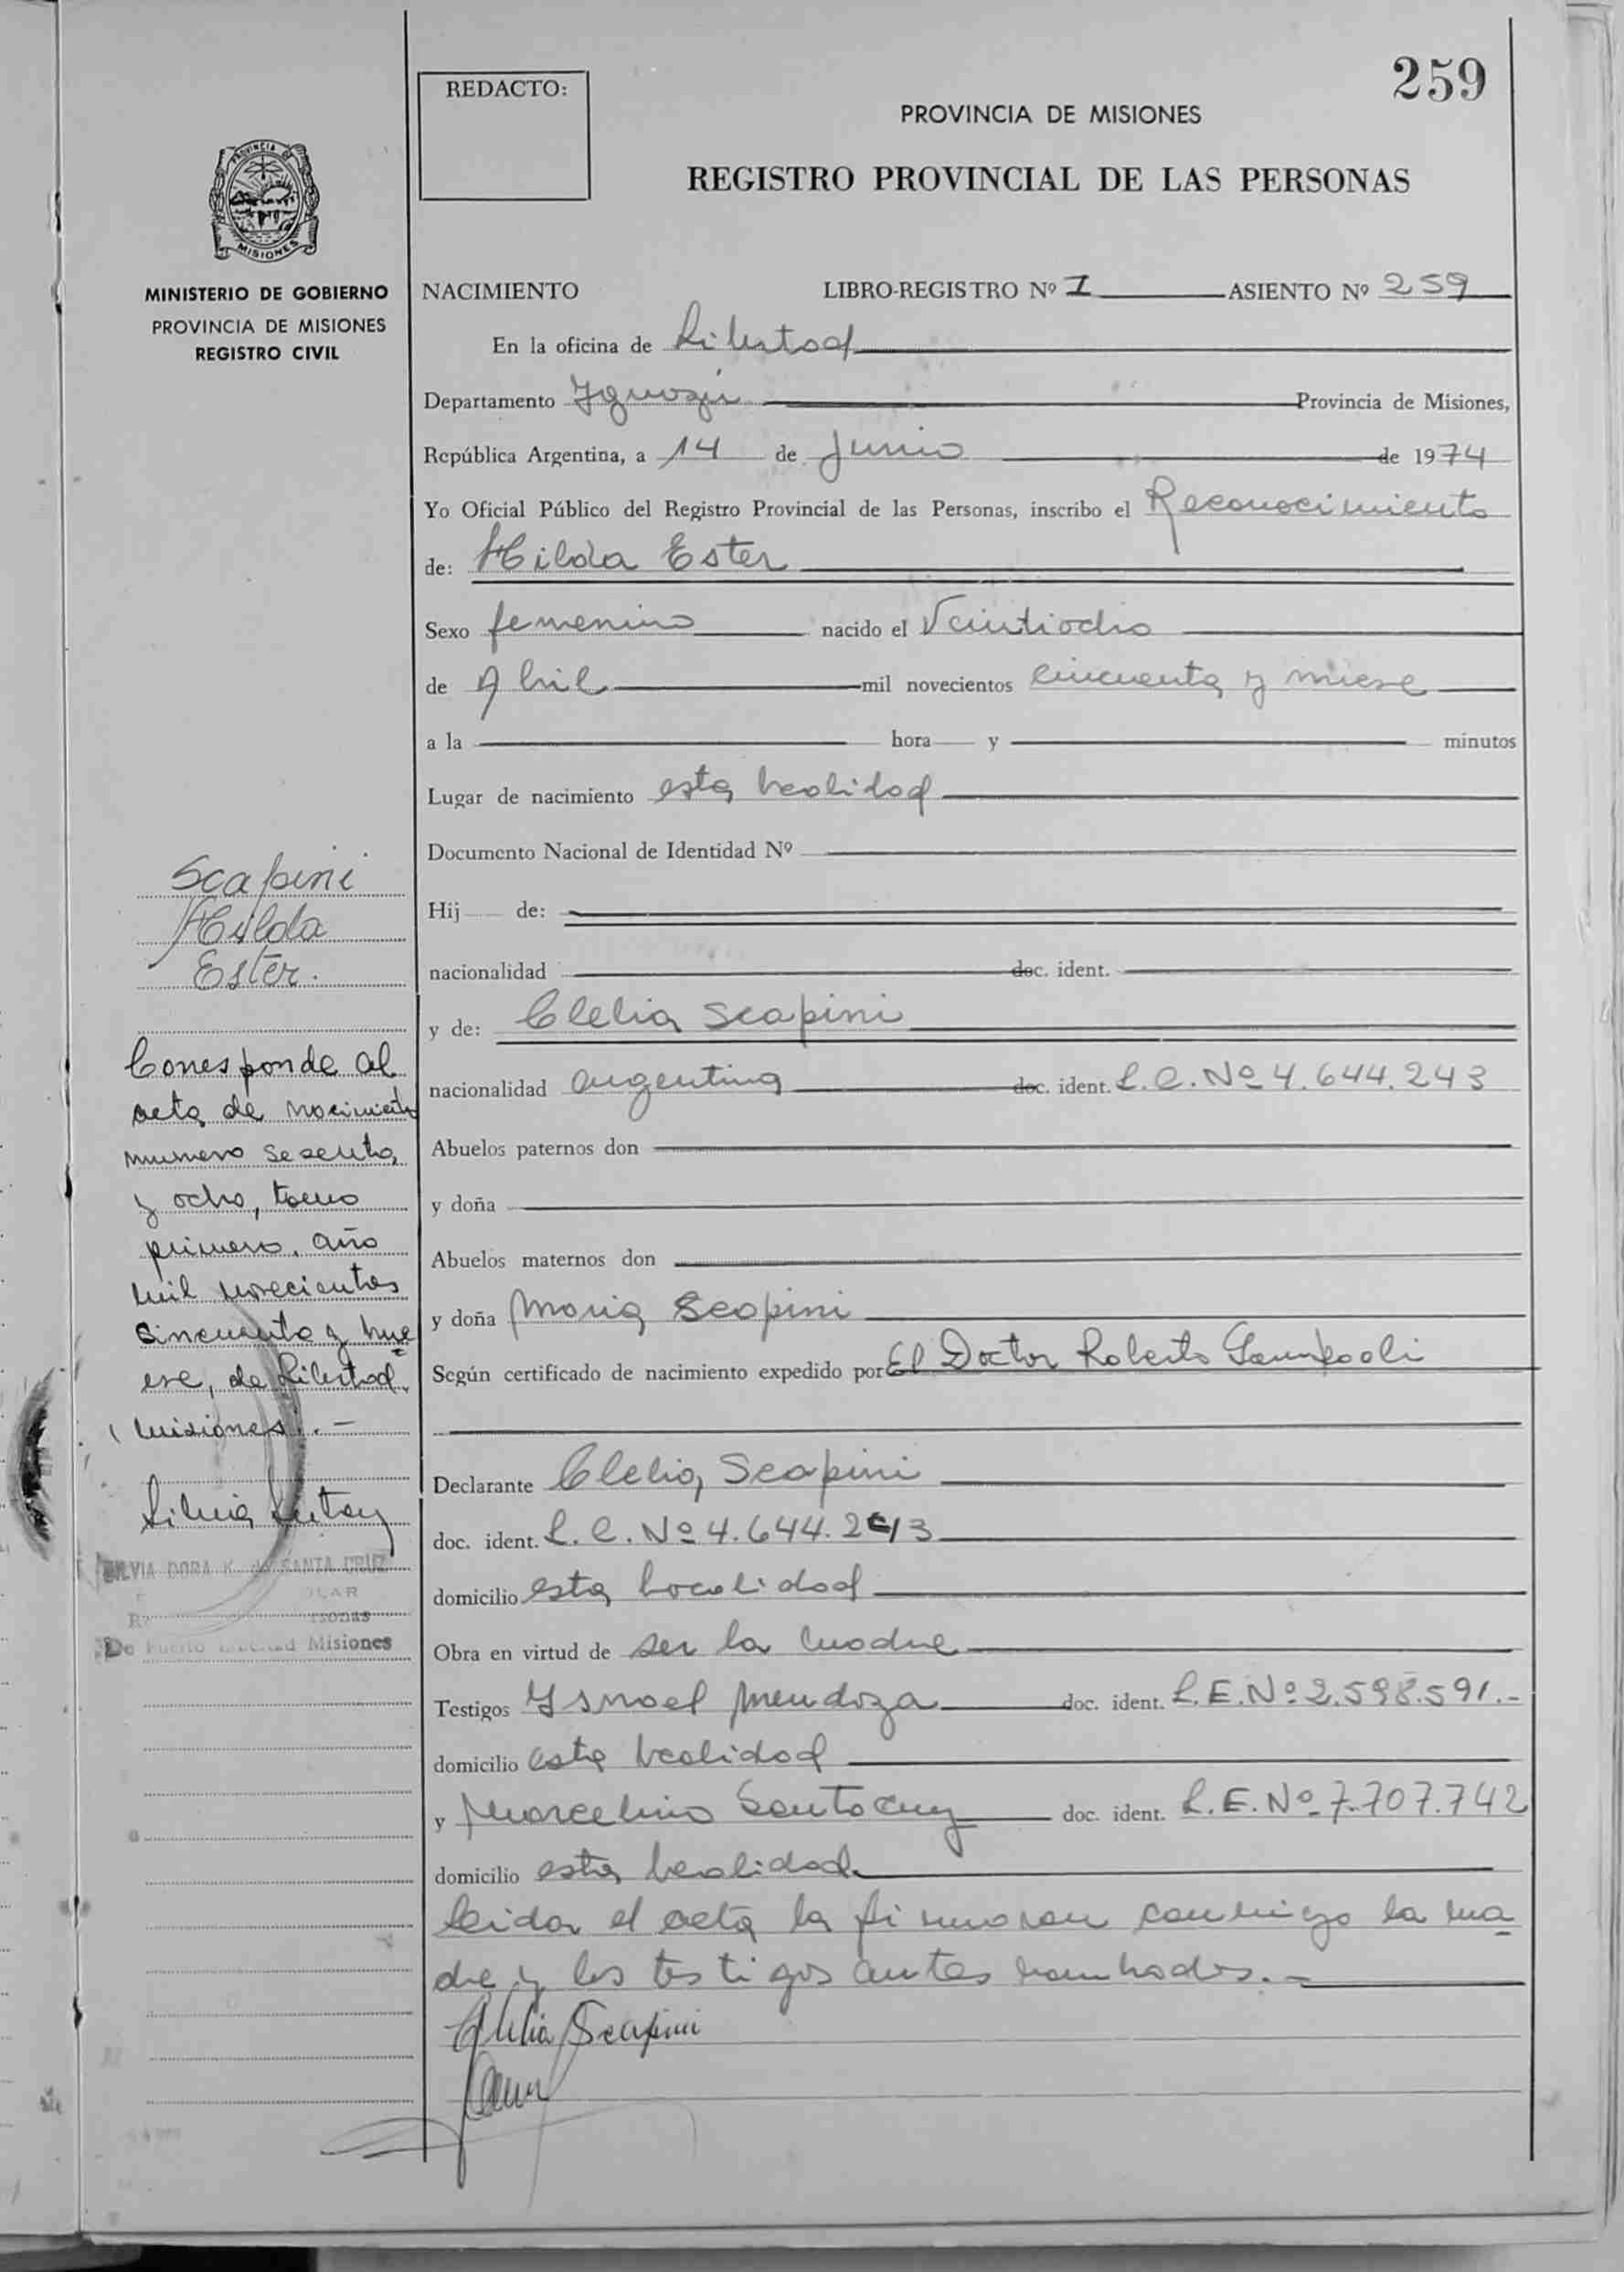 259
REDACTO:
PROVINCIA DE MISIONES
REGISTRO PROVINCIAL DE LAS PERSONAS
PROVINCIA DE
MISIONES
MINISTERIO DE GOBIERNO
PROVINCIA DE MISIONES
REGISTRO CIVIL
NACIMIENTO LIBRO-REGISTRO Nº I ASIENTO Nº 259
En la oficina de Libertad
Departamento Iguazú Provincia de Misiones,
República Argentina, a 14 de Junio de 1974
Yo Oficial Público del Registro Provincial de las Personas, inscribo el Reconocimiento
de: Hilda Ester
Sexo femenino nacido el Veintiocho
de Abril mil novecientos cincuenta y nueve
a la hora y minutos
Lugar de nacimiento esta localidad
Documento Nacional de Identidad Nº
Hij de:
nacionalidad doc. ident.
y de: Clelia Scapini
nacionalidad argentina doc. ident. L.C. Nº 4.644.243
Abuelos paternos don
y doña
Abuelos maternos don
y doña Maria Scapini
Según certificado de nacimiento expedido por El Doctor Roberto
Declarante Clelia Scapini
doc. ident. L.C. Nº 4.644.243
domicilio esta localidad
Obra en virtud de ser la madre
Testigos Ismael Mendoza doc. ident. L.E. Nº 2.598.591.-
domicilio esta localidad
y Marcelino Santacruz doc. ident. L.E. Nº 7.707.742
domicilio esta localidad
leida el acta la firmaran conmigo la ma
dre y los testigos antes nombrados.-
Clelia Scapini
Scapini
Hilda
Ester.
Corresponde al
acta de nacimiento
numero sesenta
y ocho, tomo
primero, año
mil novecientos
cincuenta y nue
eve, de Libertad
Misiones.-
SILVIA DORA K. de SANTA CRUZ
De Puerto Libertad Misiones